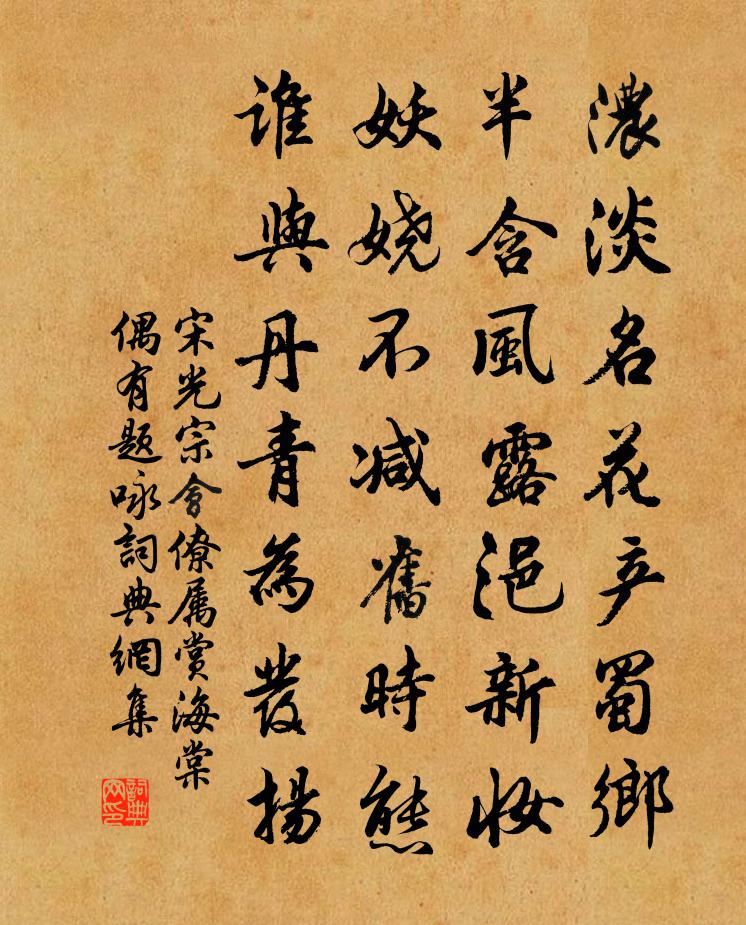 濃淡名花产蜀鄉
半含風露浥新妝
妖嬈不減舊時態
誰與丹青為發揚
宋光宗會僚属賞海棠
偶有题咏詞典網集
詞典网印